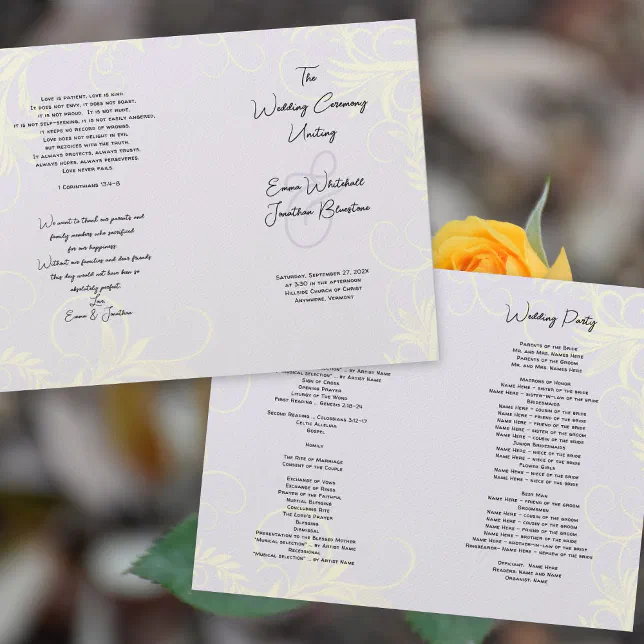 Love is patient, love is kind.
It does not envy, it does not boast,
it is not proud. It is not rude,
it is not self-seeking, it is not easily angered,
it keeps no record of wrongs.
Love does not delight in evil
but rejoices with the truth.
It always protects, always trusts,
always hopes, always perseveres.
Love never fails.
1 Corinthians 13:4-8
We want to thank our parents and
family members who sacrificed
for our happiness.
Without our families and dear friends
this day would not have been so
absolutely perfect.
Love,
Emma & Jonathan
The
Wedding Ceremony
Uniting
&
Emma Whitehall
Jonathan Bluestone
Saturday, September 27, 202X
at 3:30 in the afternoon
Hillside Church of Christ
Anywhere, Vermont
"Musical selection" ... by Artist Name
Sign of Cross
Opening Prayer
Liturgy of The Word
First Reading ... Genesis 2:18-24
Second Reading ... Colossians 3:12-17
Celtic Alleluia
Gospel
Homily
The Rite of Marriage
Consent of the Couple
Exchange of Vows
Exchange of Rings
Prayer of the Faithful
Nuptial Blessing
Concluding Rite
The Lord's Prayer
Blessing
Dismissal
Presentation to the Blessed Mother
"Musical selection" ... by Artist Name
Recessional
"Musical selection" ... by Artist Name
Wedding Party
Parents of the Bride
Mr. and Mrs. Names Here
Parents of the Groom
Mr. and Mrs. Names Here
Matrons of Honor
Name Here – sister of the bride
Name Here – sister-in-law of the bride
Bridesmaids
Name Here – cousin of the bride
Name Here – friend of the bride
Name Here – friend of the bride
Name Here – sister of the groom
Name Here – cousin of the bride
Junior Bridesmaids
Name Here – niece of the bride
Name Here – niece of the bride
Flower Girls
Name Here – niece of the bride
Name Here – niece of the bride
Best Man
Name Here – friend of the groom
Groomsmen
Name Here – cousin of the groom
Name Here – cousin of the groom
Name Here – friend of the groom
Name Here – brother of the bride
Name Here – brother of the bride
Name Here – brother-in-law of the bride
Ringbearer – Name Here – nephew of the bride
Officiant: Name Here
Readers: Name and Name
Organist: Name